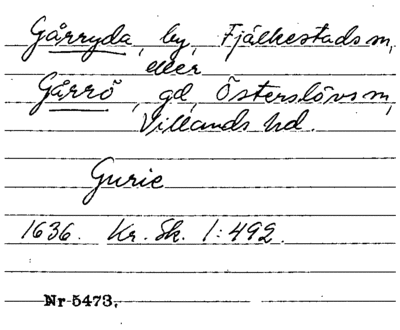 Gårryda, by, Fjälkestads sn,
eller
Gårrö, gd, Österslövs sn,
Villands hd.
Gurie
1636. Kr. Sk. 1:492.
Nr 5473.